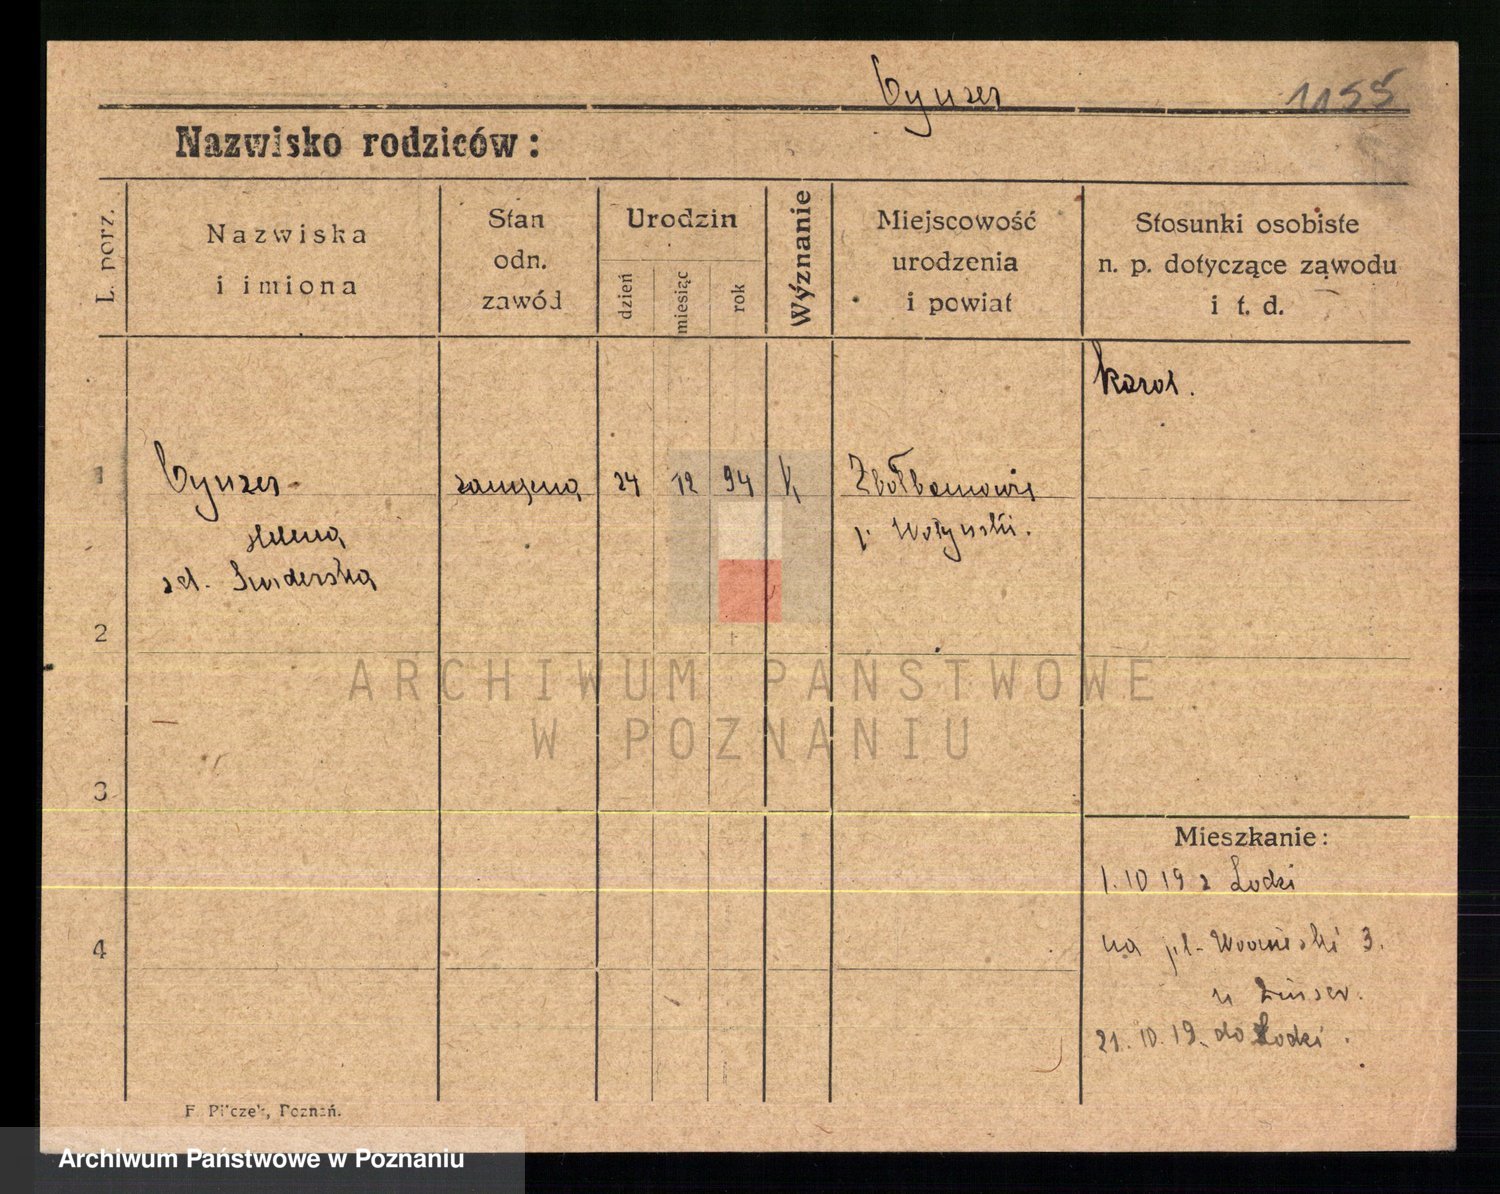 Cynzer 1155
Nazwisko rodziców:
L. porz.
Nazwiska
i imiona
Stan
odn.
zawód
Urodzin
dzień
miesiąc
rok
Wyznanie
Miejscowość
urodzenia
i powiat
Stosunki osobiste
n. p. dotyczące zawodu
i t. d.
Karol.
1 Cynzer 24 12 94 K
Helena
zd. Swiderska
Wołyński.
2
3
4
ARCHIWUM PAŃSTWOWE
W POZNANIU
Mieszkanie:
1. 10 19 z Lodzi
na pl. 3.
u
21. 10. 19. do Lodzi.
F. Pilczek, Poznań.
Archiwum Państwowe w Poznaniu